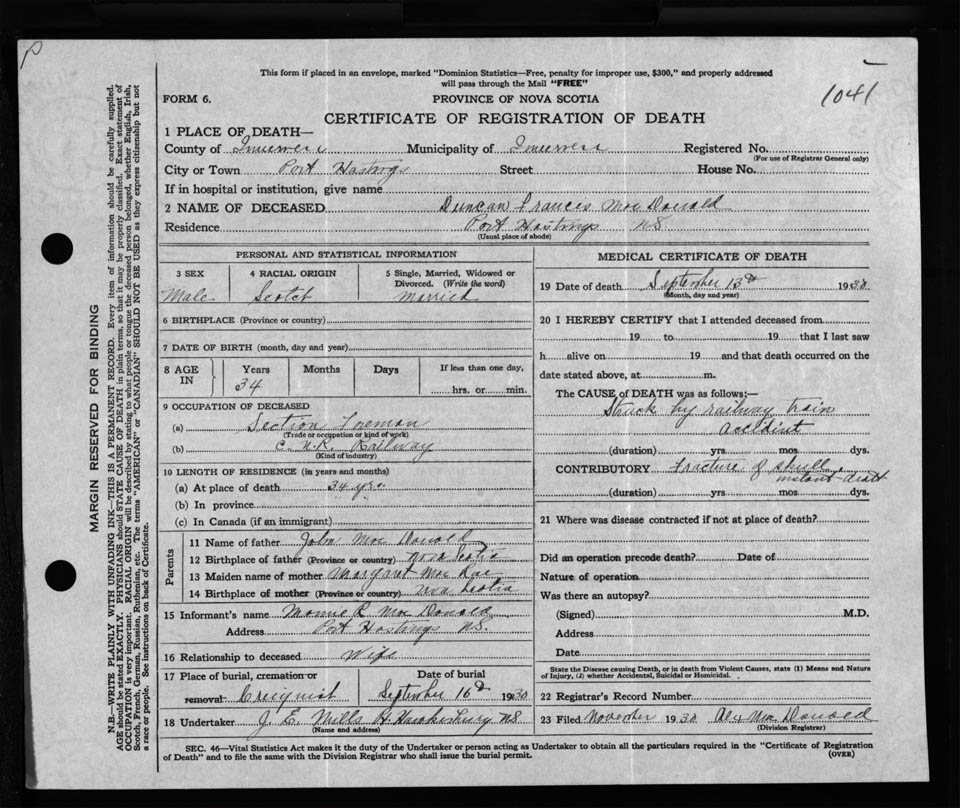 P
This form if placed in an envelope, marked "Dominion Statistics—Free, penalty for improper use, $300," and properly addressed
will pass through the Mail "FREE"
1041
FORM 6.
PROVINCE OF NOVA SCOTIA
CERTIFICATE OF REGISTRATION OF DEATH
1 PLACE OF DEATH—
County of Inverness Municipality of Inverness Registered No.
(For use of Registrar General only)
City or Town Port Hastings Street House No.
If in hospital or institution, give name
2 NAME OF DECEASED Duncan Francis Mac Donald
Residence Port Hastings NS
(Usual place of abode)
PERSONAL AND STATISTICAL INFORMATION
3 SEX 4 RACIAL ORIGIN 5 Single, Married, Widowed or
Divorced. (Write the word)
Male Scotch Married
6 BIRTHPLACE (Province or country)
7 DATE OF BIRTH (month, day and year)
8 AGE IN Years Months Days If less than one day,
34 hrs. or min.
9 OCCUPATION OF DECEASED
(a) Section Foreman
(Trade or occupation or kind of work)
(b) C.N.R. Railway
(Kind of industry)
10 LENGTH OF RESIDENCE (in years and months)
(a) At place of death 34 yrs.
(b) In province
(c) In Canada (if an immigrant)
Parents
11 Name of father John Mac Donald
12 Birthplace of father (Province or country) Nova Scotia
13 Maiden name of mother Margaret Mac Rae
14 Birthplace of mother (Province or country) Nova Scotia
15 Informant's name R Mac Donald
Address Port Hastings NS.
16 Relationship to deceased Wife
17 Place of burial, cremation or Date of burial
removal Creignish September 16th 1930
18 Undertaker J. E. Mills Pt Hawkesbury NS
(Name and address)
MEDICAL CERTIFICATE OF DEATH
19 Date of death September 13th 1930
(Month, day and year)
20 I HEREBY CERTIFY that I attended deceased from
19 to 19 that I last saw
h alive on 19 and that death occurred on the
date stated above, at m.
The CAUSE of DEATH was as follows:—
Struck by railway train
accident
(duration) yrs. mos dys.
CONTRIBUTORY Fracture of skull
instant death
(duration) yrs. mos dys.
21 Where was disease contracted if not at place of death?
Did an operation precede death? Date of
Nature of operation
Was there an autopsy?
(Signed) M.D.
Address
Date
State the Disease causing Death, or in death from Violent Causes, state (1) Means and Nature
of Injury, (2) whether Accidental, Suicidal or Homicidal.
22 Registrar's Record Number
23 Filed November 1930 Alex Mac Donald
(Division Registrar)
SEC. 46—Vital Statistics Act makes it the duty of the Undertaker or person acting as Undertaker to obtain all the particulars required in the "Certificate of Registration
of Death" and to file the same with the Division Registrar who shall issue the burial permit.
(OVER)
MARGIN RESERVED FOR BINDING
N.B.—WRITE PLAINLY WITH UNFADING INK—THIS IS A PERMANENT RECORD. Every item of information should be carefully supplied.
AGE should be stated EXACTLY. PHYSICIANS should STATE CAUSE OF DEATH in plain terms, so that it may be properly classified. Exact statement of
OCCUPATION is very important. RACIAL ORIGIN will be described by stating to what people or tongue the deceased person belonged, whether English, Irish,
Scotch, French, German, Russian, Ruthenian, etc. The terms "AMERICAN" or "CANADIAN" SHOULD NOT BE USED as they express citizenship but not
a race or people. See instructions on back of Certificate.